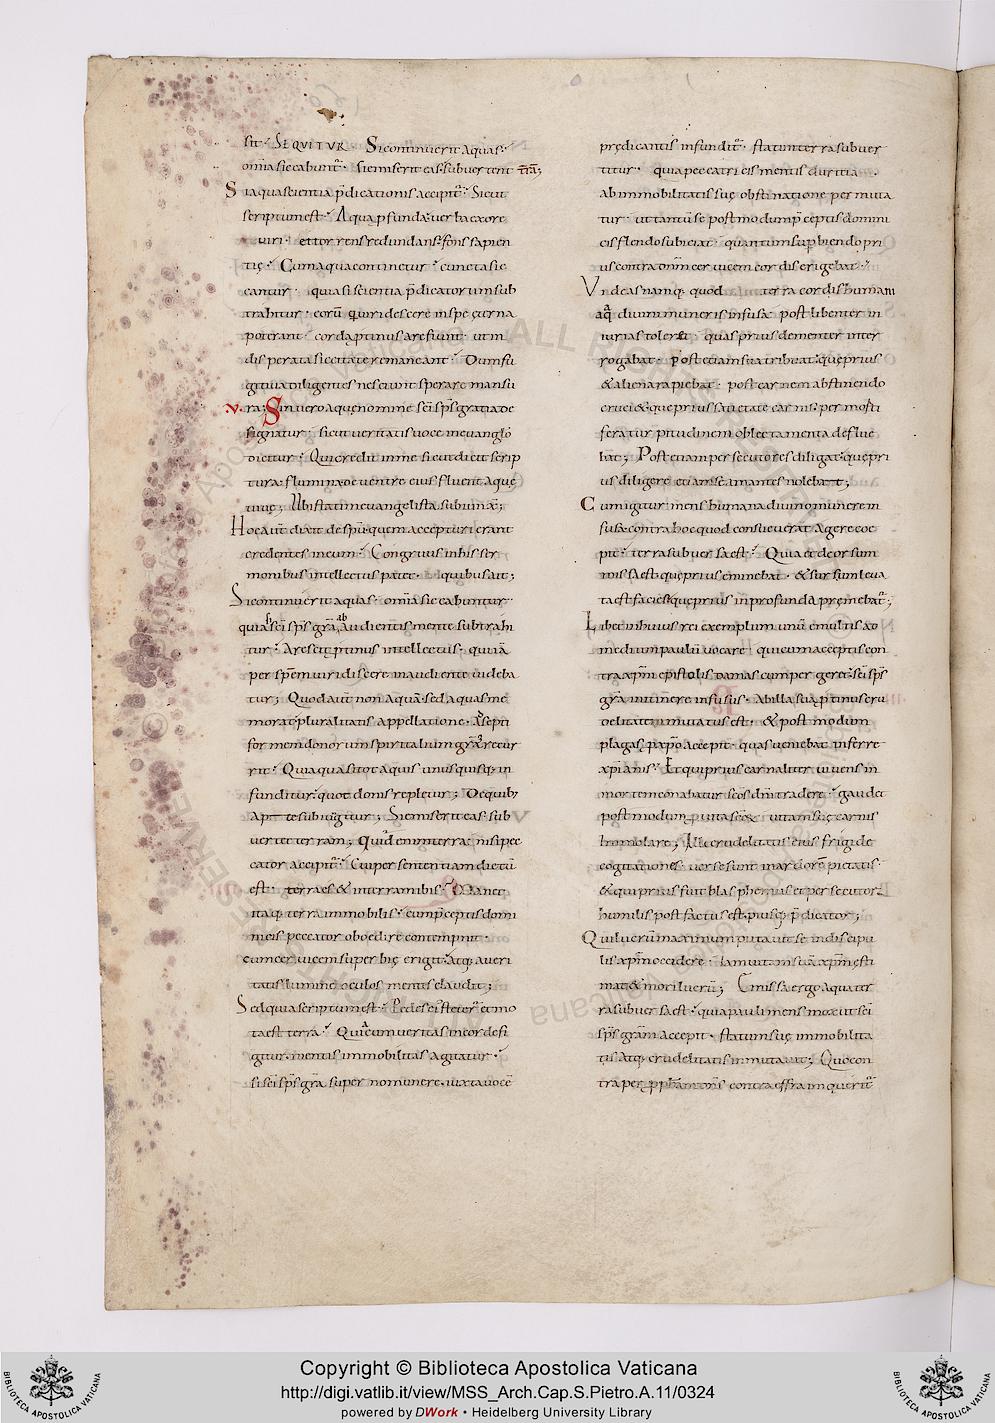 sit· SEQUITUR. Si continuerit aquas·
omia siccabunt᷑· Si emiserit eas· subvertent t̄rā;
Si aqua scientia p̄dicationis accipit᷑· Sicut
scriptum est· Aqua p̄funda· verba ex ore
viri· et torrens redundans· fons sapien
tię· Cum aqua continetur· cuncta sic
cantur· quia si scientia p̄dicatorum sub
trahitur· eorū qui viridescere in spe ęterna
poterant· corda p̄tinus arefiunt· ut in
disperata siccitate remaneant· Dum fu
gitiva diligentes nesciunt sperare mansu
v. ra; Sin vero aquę nomine sc̄i sp̄s gratia de
signatur· sicut veritatis voce in evanglō
dicitur· Qui credit in me sicut dicit scrip
tura· flumina de ventre eius fluent aquę
vivę; Ubi statim evangelista subiunx̄;
Hoc aut̄ dixit de sp̄u· quem accepturi erant
credentes in eum· Congruus in his ser
monibus intellectus patet· quibus ait;
Si continuerit aquas· omīa siccabuntur·
quia si sc̄i sp̄s grā ab audientis mente subtrahi
tur· Arescit p̄tinus intellectus· qui iā
per spem viridiscere in audiente videba
tur; Quod aut̄ non Aquā· sed aquas me
morat· pluralitatis appellatione· Septi
formem donorum spiritalium grā recur
rit· Quia quasi tot aquis unusquisq; in
funditur· quot donis repletur; De quib;
Apte subiūgitur; Si emiserit eas· sub
vertet terram; Quid enim terra· nisi pec
cator accipit᷑· Cui per sententiam dictū
est· terra es & in terram ibis· Manet
itaq; terra immobilis· cum p̄ceptis domi
nicis peccator oboedire contempnit·
cum cervicem superbię erigit· Atq; a veri
tatis lumine oculos mentis claudit;
Sed quia scriptum est· Pedes ei᷒ steter̄· et mo
ta est terra· Quia cum veritas in corde fi
gitur· mentis immobilitas agitatur·
si sc̄i sp̄s grā superno munere· iuxta vocē
prędicantis infundit᷑· statim terra subver
titur· quia peccatricis mentis duritia·
ab immobilitatis suę obstinatione permuta
tur· ut tantū se postmodum p̄ceptis domini
cis flendo subiciat· quantum sup̄biendo pri
us contra domīn cervicem cordis erigebat·
Videas namq; quod terra cordis humani
aq̄ divini muneris infusa· post libenter in
iurias toleret· quas prius dementer inter
rogabat· Post etiam sua tribuat· quę prius
& aliena rapiebat· post carnem abstinendo
cruciet· quę prius sacietate carnis· per mosti
feratur p̄titudinem oblectamenta deflue
bat; Post etiam persecutores diligat· quę pri
us diligere etiam se amantes nolebat;
Cum igitur mens humana divino munere in
fusa· contra hoc quod consueverat agere coe
pit· terra subversa est· Quia et deorsum
missa est quę prius eminebat· & sursum leva
ta est facies· quę prius in profunda pręmebat᷑;
Libet in huius rei exemplum unū e multis ad
medium paulū vocare· qui cum acceptis con
tra xp̄m epistolis damascum pergeret· sc̄i sp̄s
grā in itinere infusus· Ab illa sua p̄tinus cru
delitate inmutatus est· & postmodum
plagas pro xp̄o accepit· quas veniebat inferre
xp̄ianis· Et qui prius carnaliter vivens in
mortem conabatur sc̄os dn̄i tradere· gaudet
postmodum p̄ vita sc̄o᷒ vitam suę carnis
immolare; Illę crudelitatis eius frigide
cogitationes· versę sunt in ardorē pietatis·
& qui prius fuit blasphemus et persecutor·
humilis post factus est· piusq; p̄dicator;
Qui lucrū maximum putavit se in discipu
lis xp̄m occidere· Iam vitam suā xp̄m esti
mat· & mori lucrū; Emissa ergo aqua ter
ra subversa est· quia pauli mens mox ut sc̄i
sp̄s grām accepit· statum suę immobilita
tis Atq; crudelitatis inmutavit; Quo con
tra per p̄phām dn̄s contra effraim queriť
Copyright © Biblioteca Apostolica Vaticana
http://digi.vatlib.it/view/MSS_Arch.Cap.S.Pietro.A.11/0324
powered by DWork • Heidelberg University Library
BIBLIOTECA APOSTOLICA VATICANA
BIBLIOTECA APOSTOLICA VATICANA